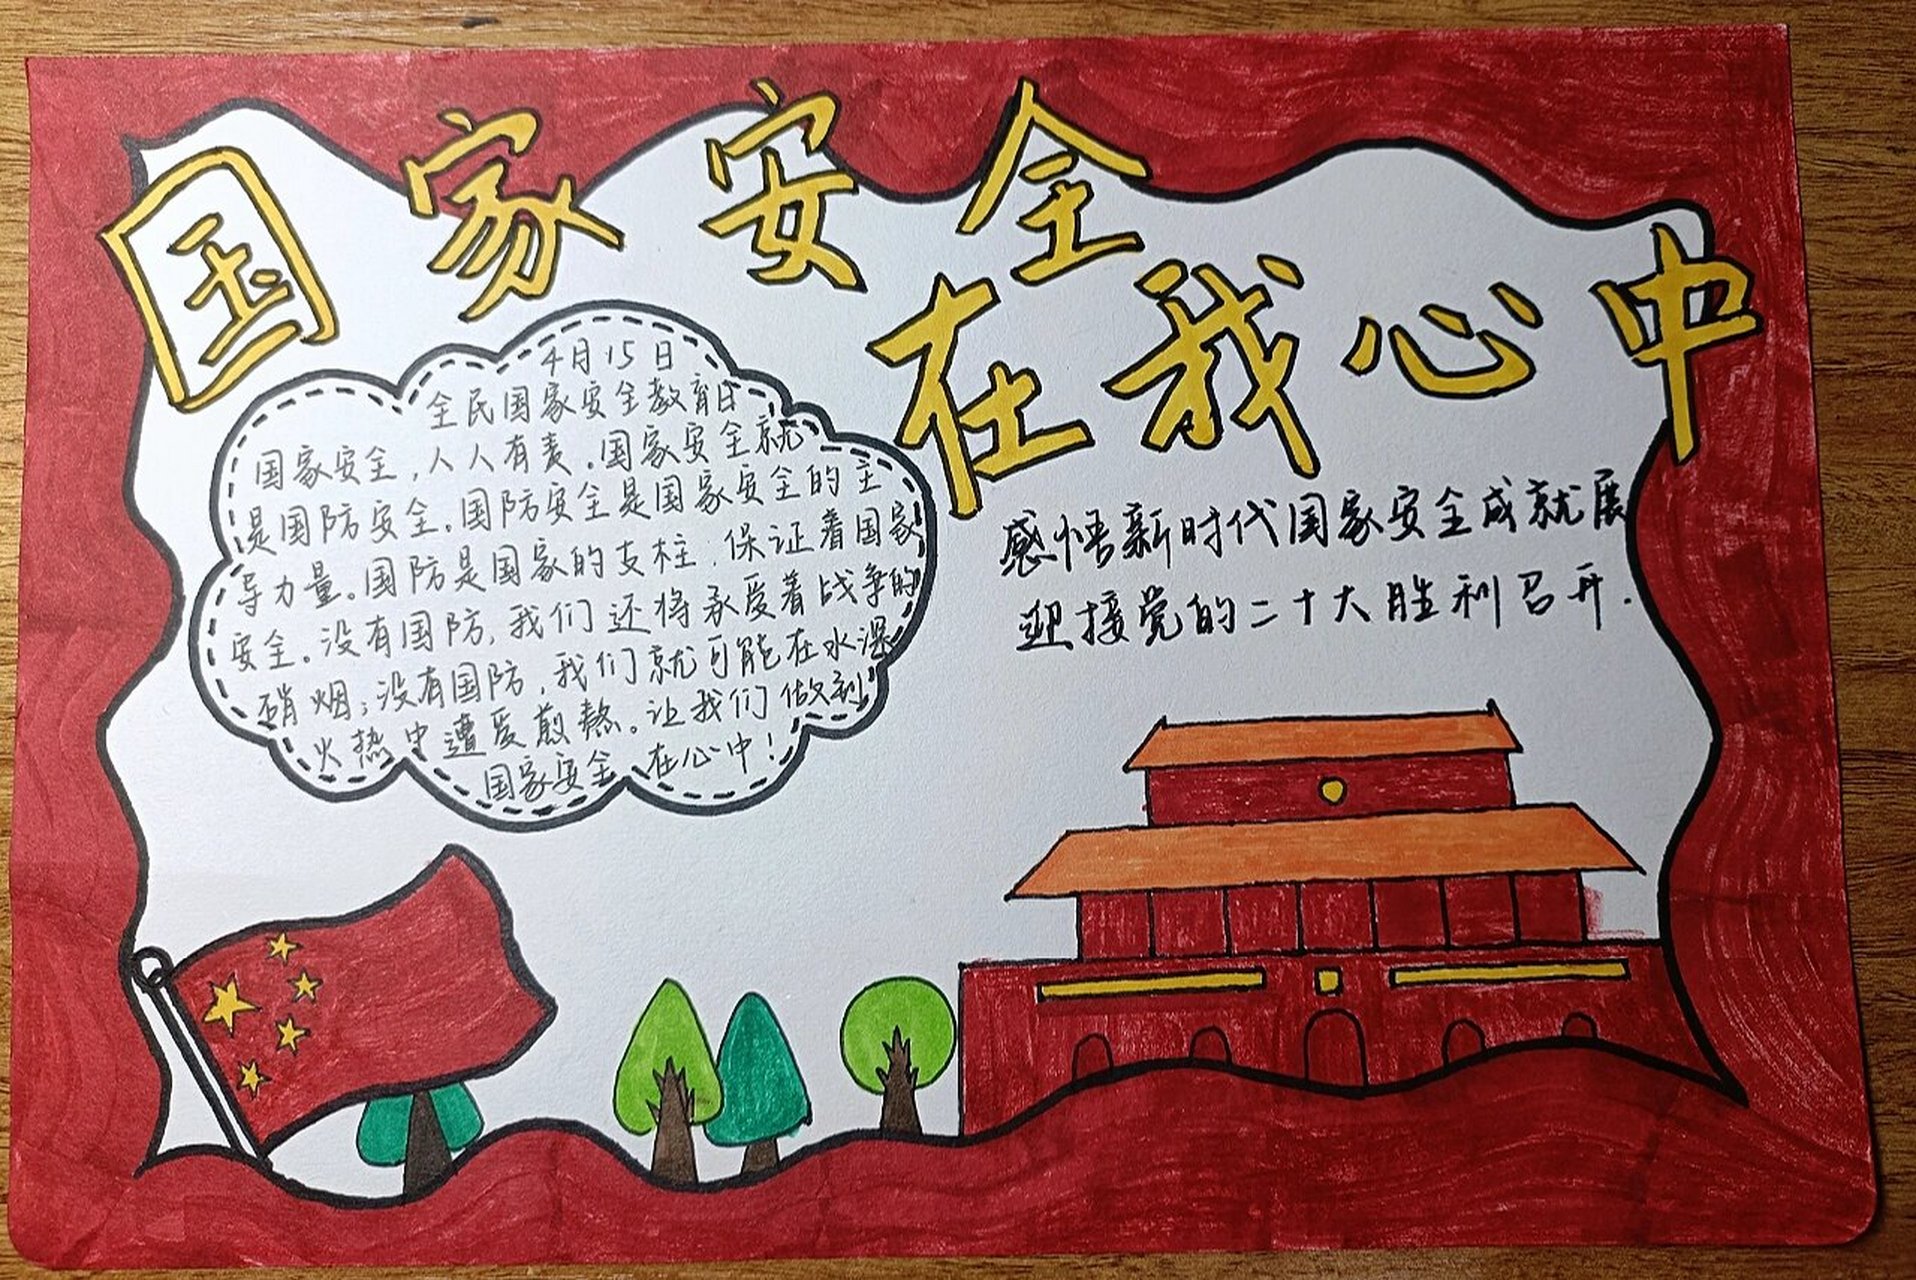 国家安全
在我心中
4月15日
全民国家安全教育日
国家安全,人人有责。国家安全就
是国防安全。国防安全是国家安全的主
导力量。国防是国家的支柱,保证着国家
安全。没有国防,我们还将承受着战争的
硝烟;没有国防,我们就可能在水深
火热中遭受煎熬。让我们做到
国家安全 在心中!
感悟新时代国家安全成就展
迎接党的二十大胜利召开.